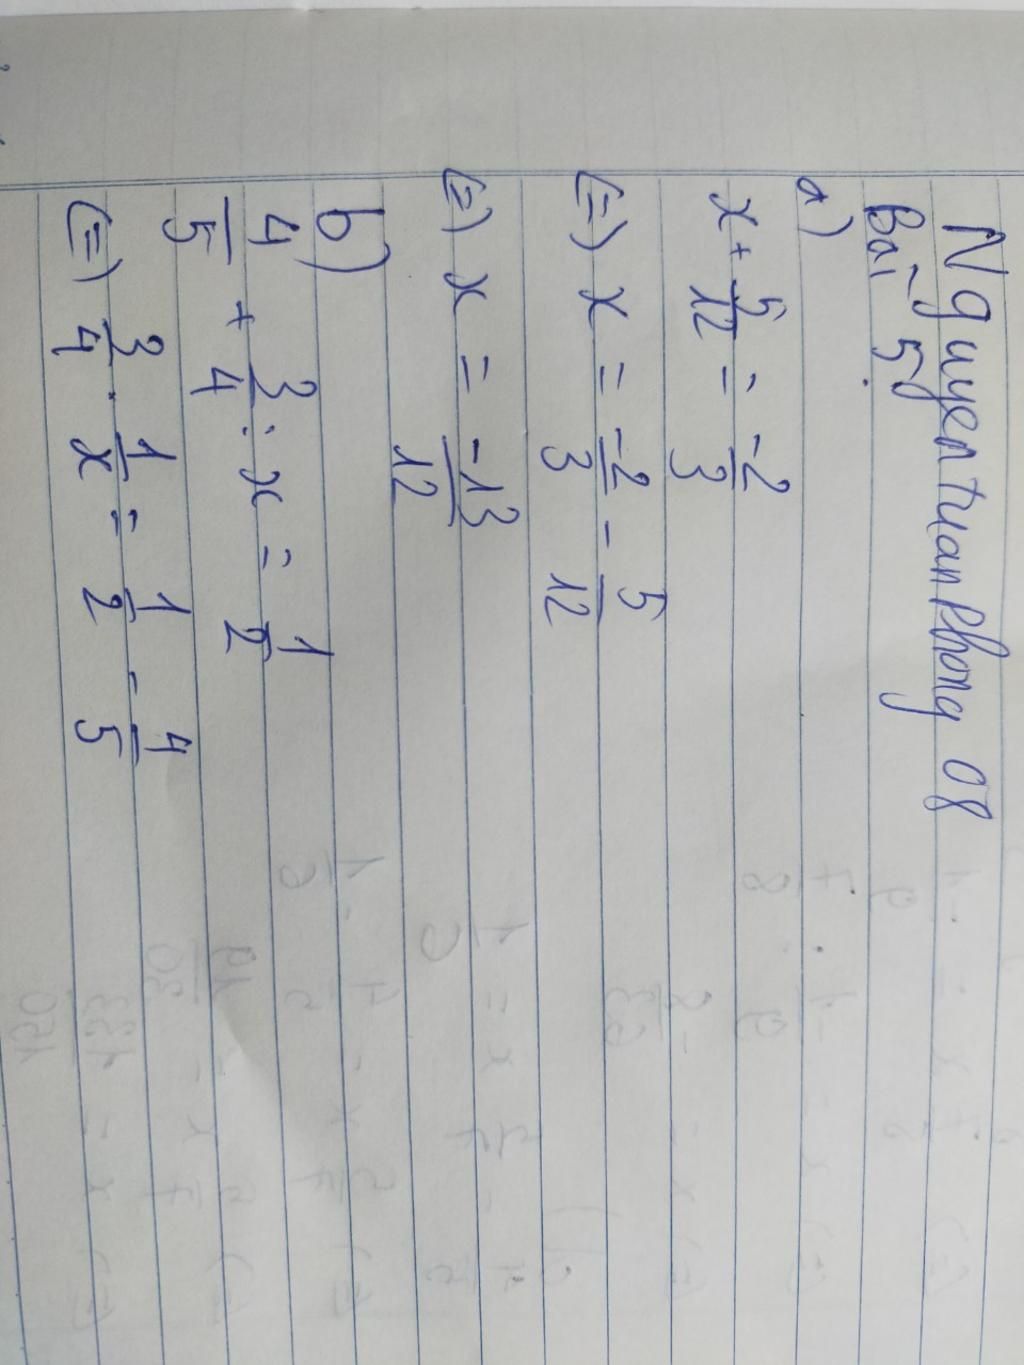 Nguyen tuan Phong 08
Bài 5:
a)
x + 5/12 = -2/3
(=) x = -2/3 - 5/12
(=) x = -13/12
b)
4/5 + 3/4 : x = 1/2
(=) 3/4 . 1/x = 1/2 - 4/5